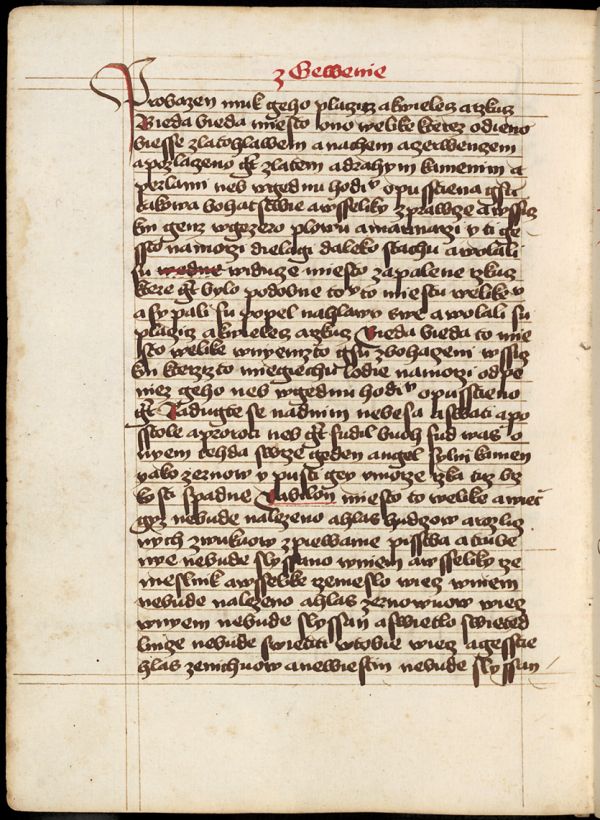 z Gewenie
Provazen muk geho placzicz a kwielecz a rzkucz
Bieda bieda miesto ono welike kterez odieno
biesse zlatohlawem a nachem a czerwenczem
a pozlaczeno gt zlatem a drahym kamenim a
perlami neb w gednu hodi opusstiena gsu
takowa bohatstwie a wsseliky zprawcze a wssicz
kni genz w gezero plowu a marinarzi y ti ge
ssto na morzi dielagi daleko stachu a wolali
su widucze miesto zapalene rzkucz
ktere gt bylo podobne to to miestu welike
a sypali su popel na hlawy swe a wolali su
placzicz a kwielecz a rzkucz Bieda bieda to mie
sto welike w nyemzto gsu zbohaczeni wssicz
kni kterzizto miegiechu lodie na morzi od pe
niez geho neb w gednu hodi opusstieno
gt Radugte se nad nim nebesa a swati apo
sstole a proroci neb gt sudil buoh sud was o
nyem tehda swrze geden angel sylni kamen
yako zernow y pusti gey w morze rzka tiz br
kosti spadne Babilon miesto to welike a wiec
gyz nebude nalezeno a hlas hudczow a rozlicz
nych zwukuow zpiewanie pisstba a trube
nye nebude slyssano w niem a wsseliky rze
meslnik a wsselike rzemeslo wiecz w niem
nebude nalezeno a hlas zernowuow wiecz
w nyem nebude slyssan a swietlo swieted
lnicze nebude swietiti w tobie wiecz a gesstie
hlas zenichuow a newiestin nebude slyssan